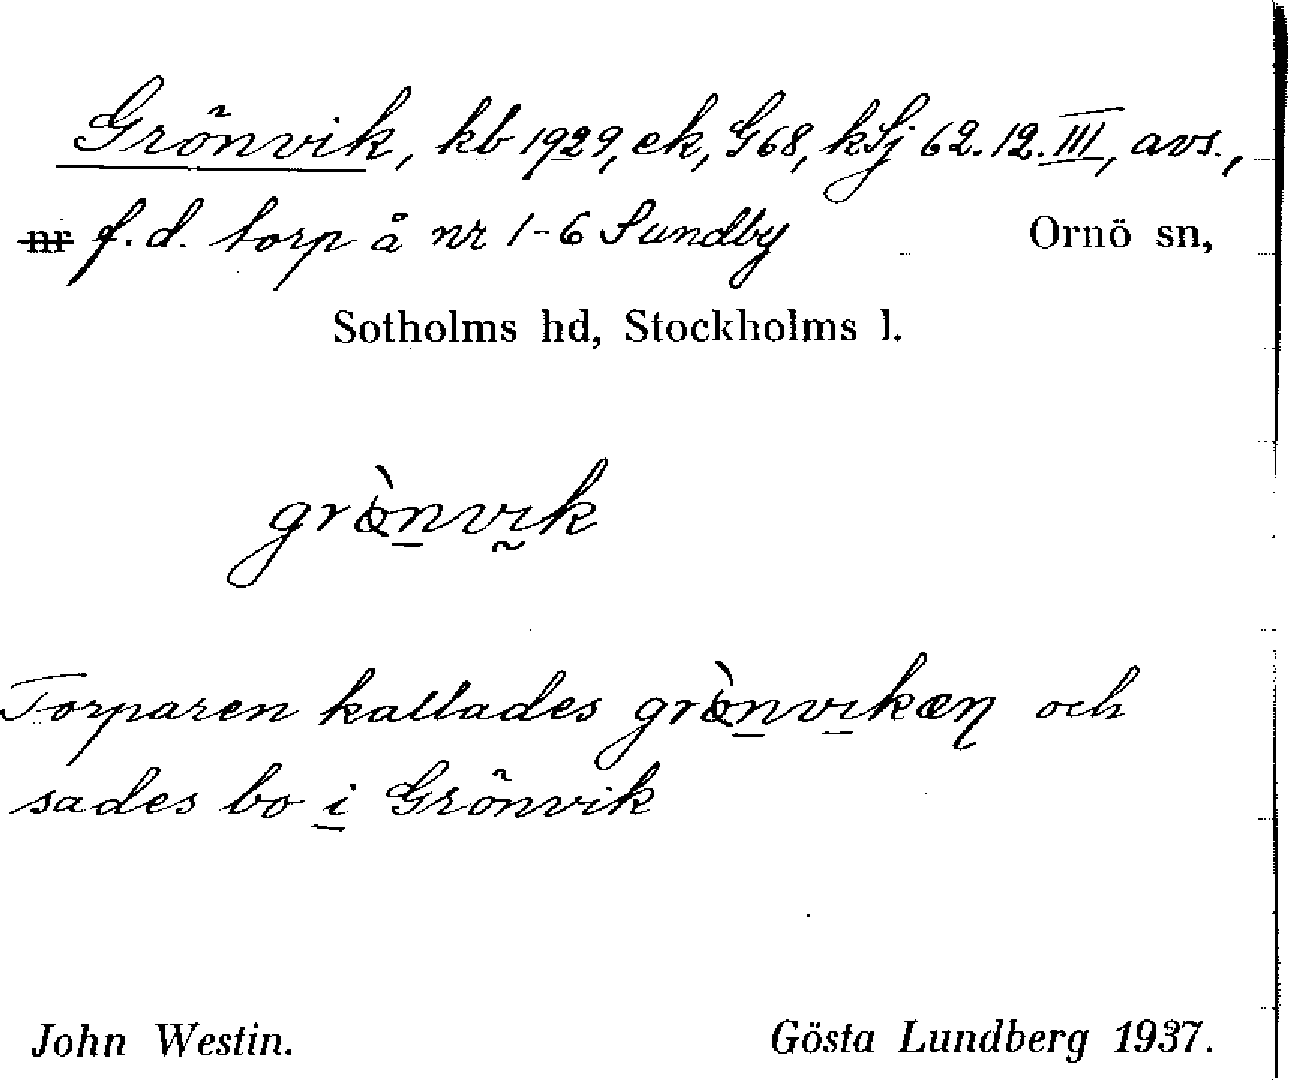 Grönvik, kb 1929, ek, G68, kSj 62.12.III, avs.,
nr f.d. torp å nr 1-6 Sundby Ornö sn,
Sotholms hd, Stockholms l.
grò̀nvik
Torparen kallades grò̀nvikæn och
sades bo i Grönvik
John Westin. Gösta Lundberg 1937.